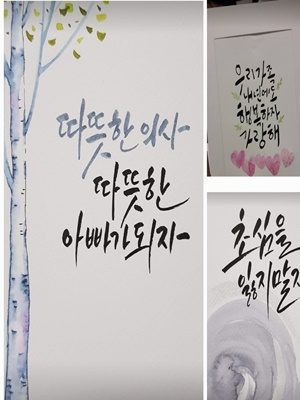 따뜻한 의사
따뜻한
아빠가 되자
우리가족
내년에도
행복하자
사랑해
초심을
잃지말자